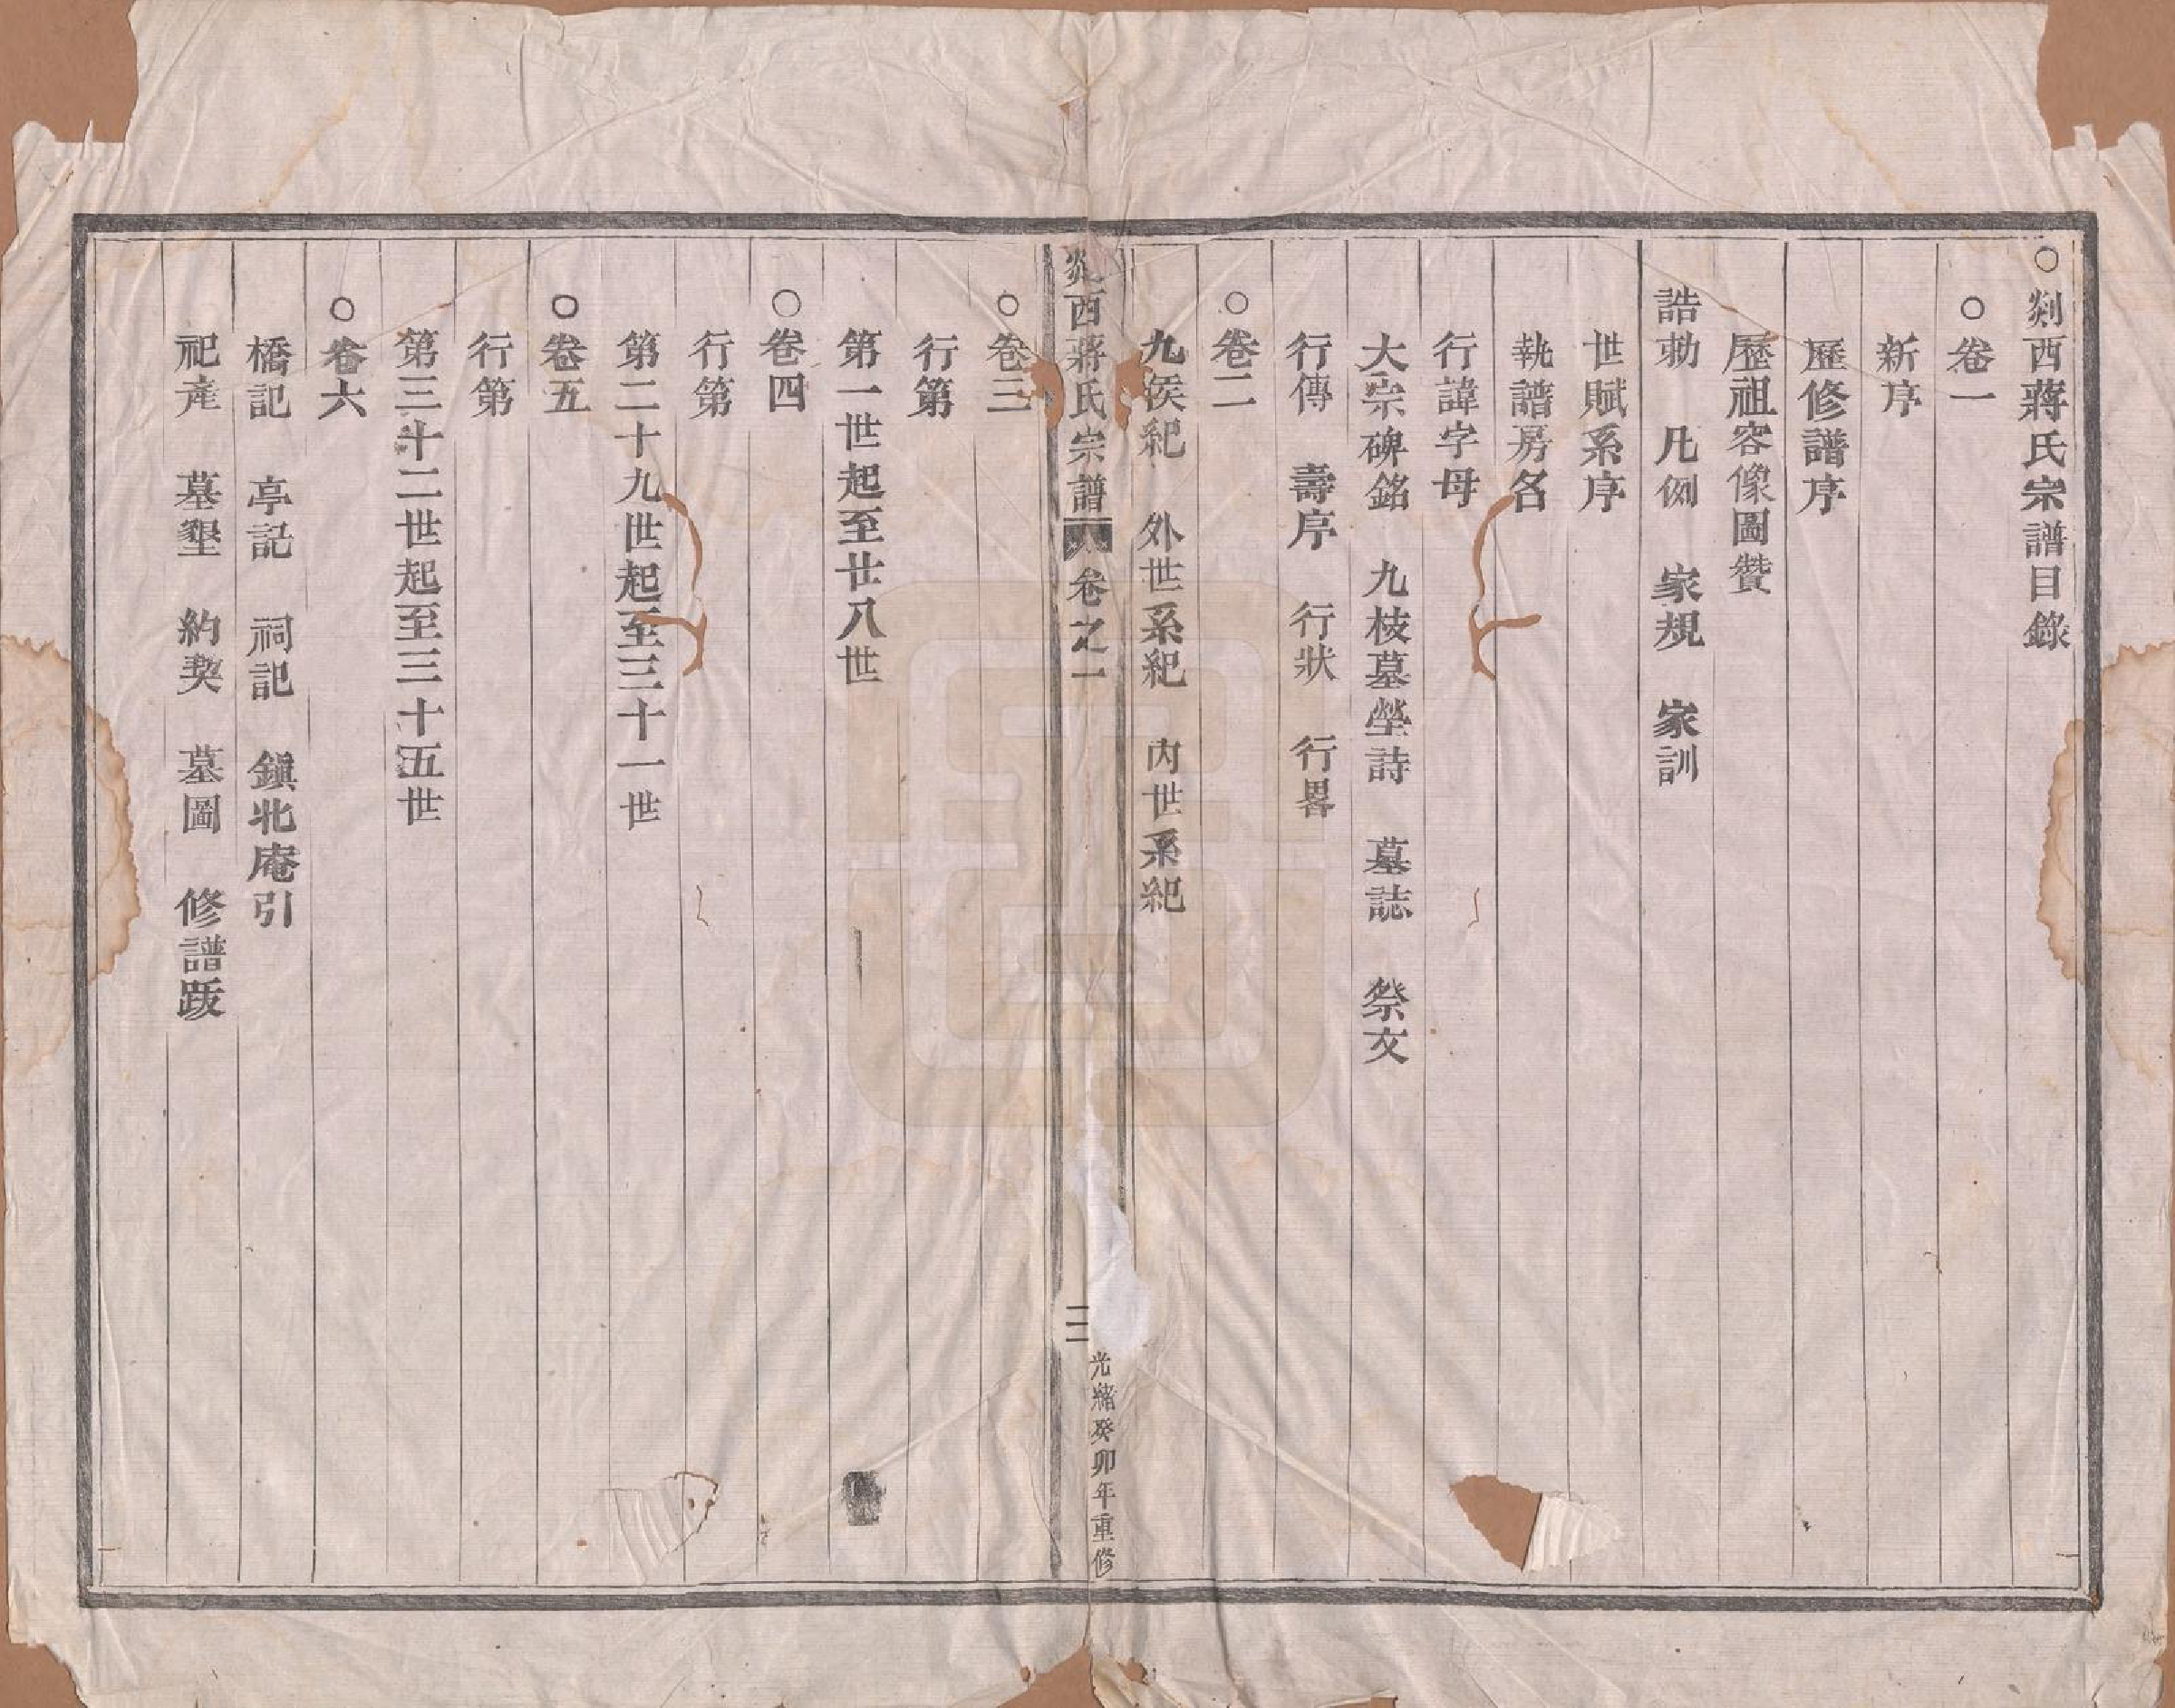 ○剡西蔣氏宗譜目錄
○卷一
新序
歷修譜序
歷祖容像圖贊
誥勅　凡例　家規　家訓
世賦系序
執譜房名
行諱字母
大宗碑銘　九枝墓塋詩　墓誌　祭文
行傳　壽序　行狀　行畧
○卷二
九侯紀　外世系紀　內世系紀
剡西蔣氏宗譜　卷之一　二　光緒癸卯年重修
○卷三
行第
第一世起至廿八世
○卷四
行第
第二十九世起至三十一世
○卷五
行第
第三十二世起至三十五世
○卷六
橋記　亭記　祠記　鎭北庵引
祀產　墓墾　約契　墓圖　修譜跋